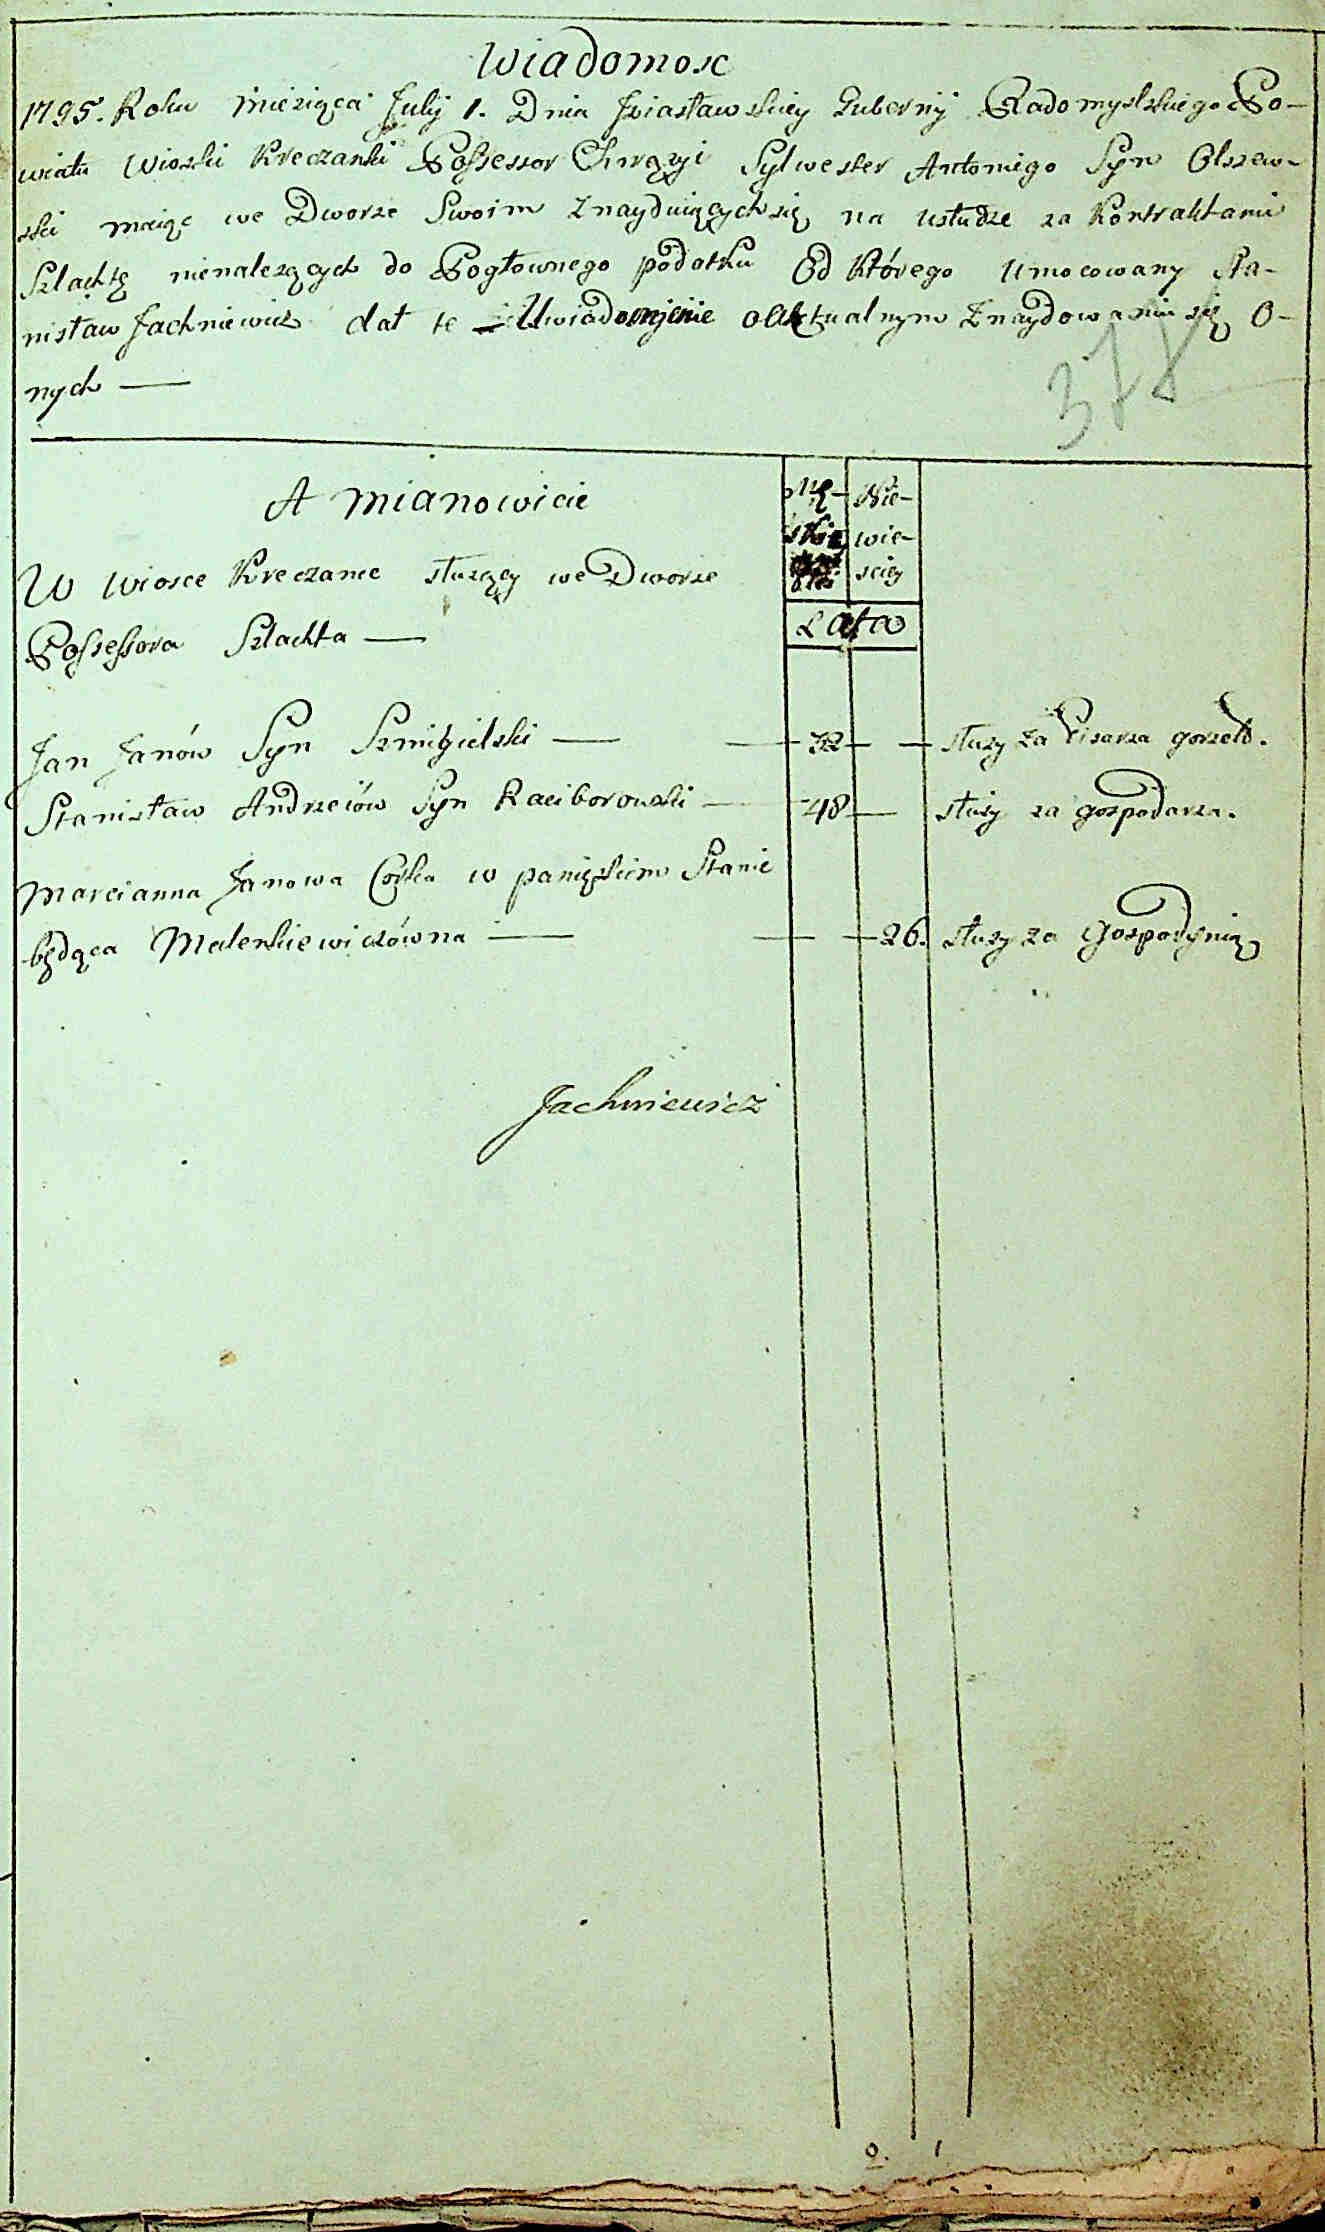 Wiadomosc
1795. Roku Miesiąca Julij 1. Dnia Iziasławskiey Gubernij Radomyslskiego Po-
wiatu Wioski Kreczanki Possessor Chrąży Sylwester Antoniego Syn Olszew-
ski maiąc we Dworze Swoim Znayduiących się na usłudze za Kontraktami
Szlachtę nienalezących do Pogłownego podatku Od którego Umocowany Sta-
nisław Jachniewicz dał te Uwiadomjenie o aktualnym Znaydowaniu się O-
nych —
378
A Mianowicie
Mę- Nie-
skie wie-
sciey
Lata
W Wiosce Kreczance służący we Dworze
Possessora Szlachta —
Jan Janów Syn Szmigielski — 32 — — służy za Pisarza gorzel.
Stanisław Andrzeiów Syn Raciborowski — 48 — służy za gospodarza.
Marcianna Janowa Corka w panięskim Stanie
będąca Malenkiewiczówna — — — 26. służy za Gospodynią
Jachniewicz
2. 1